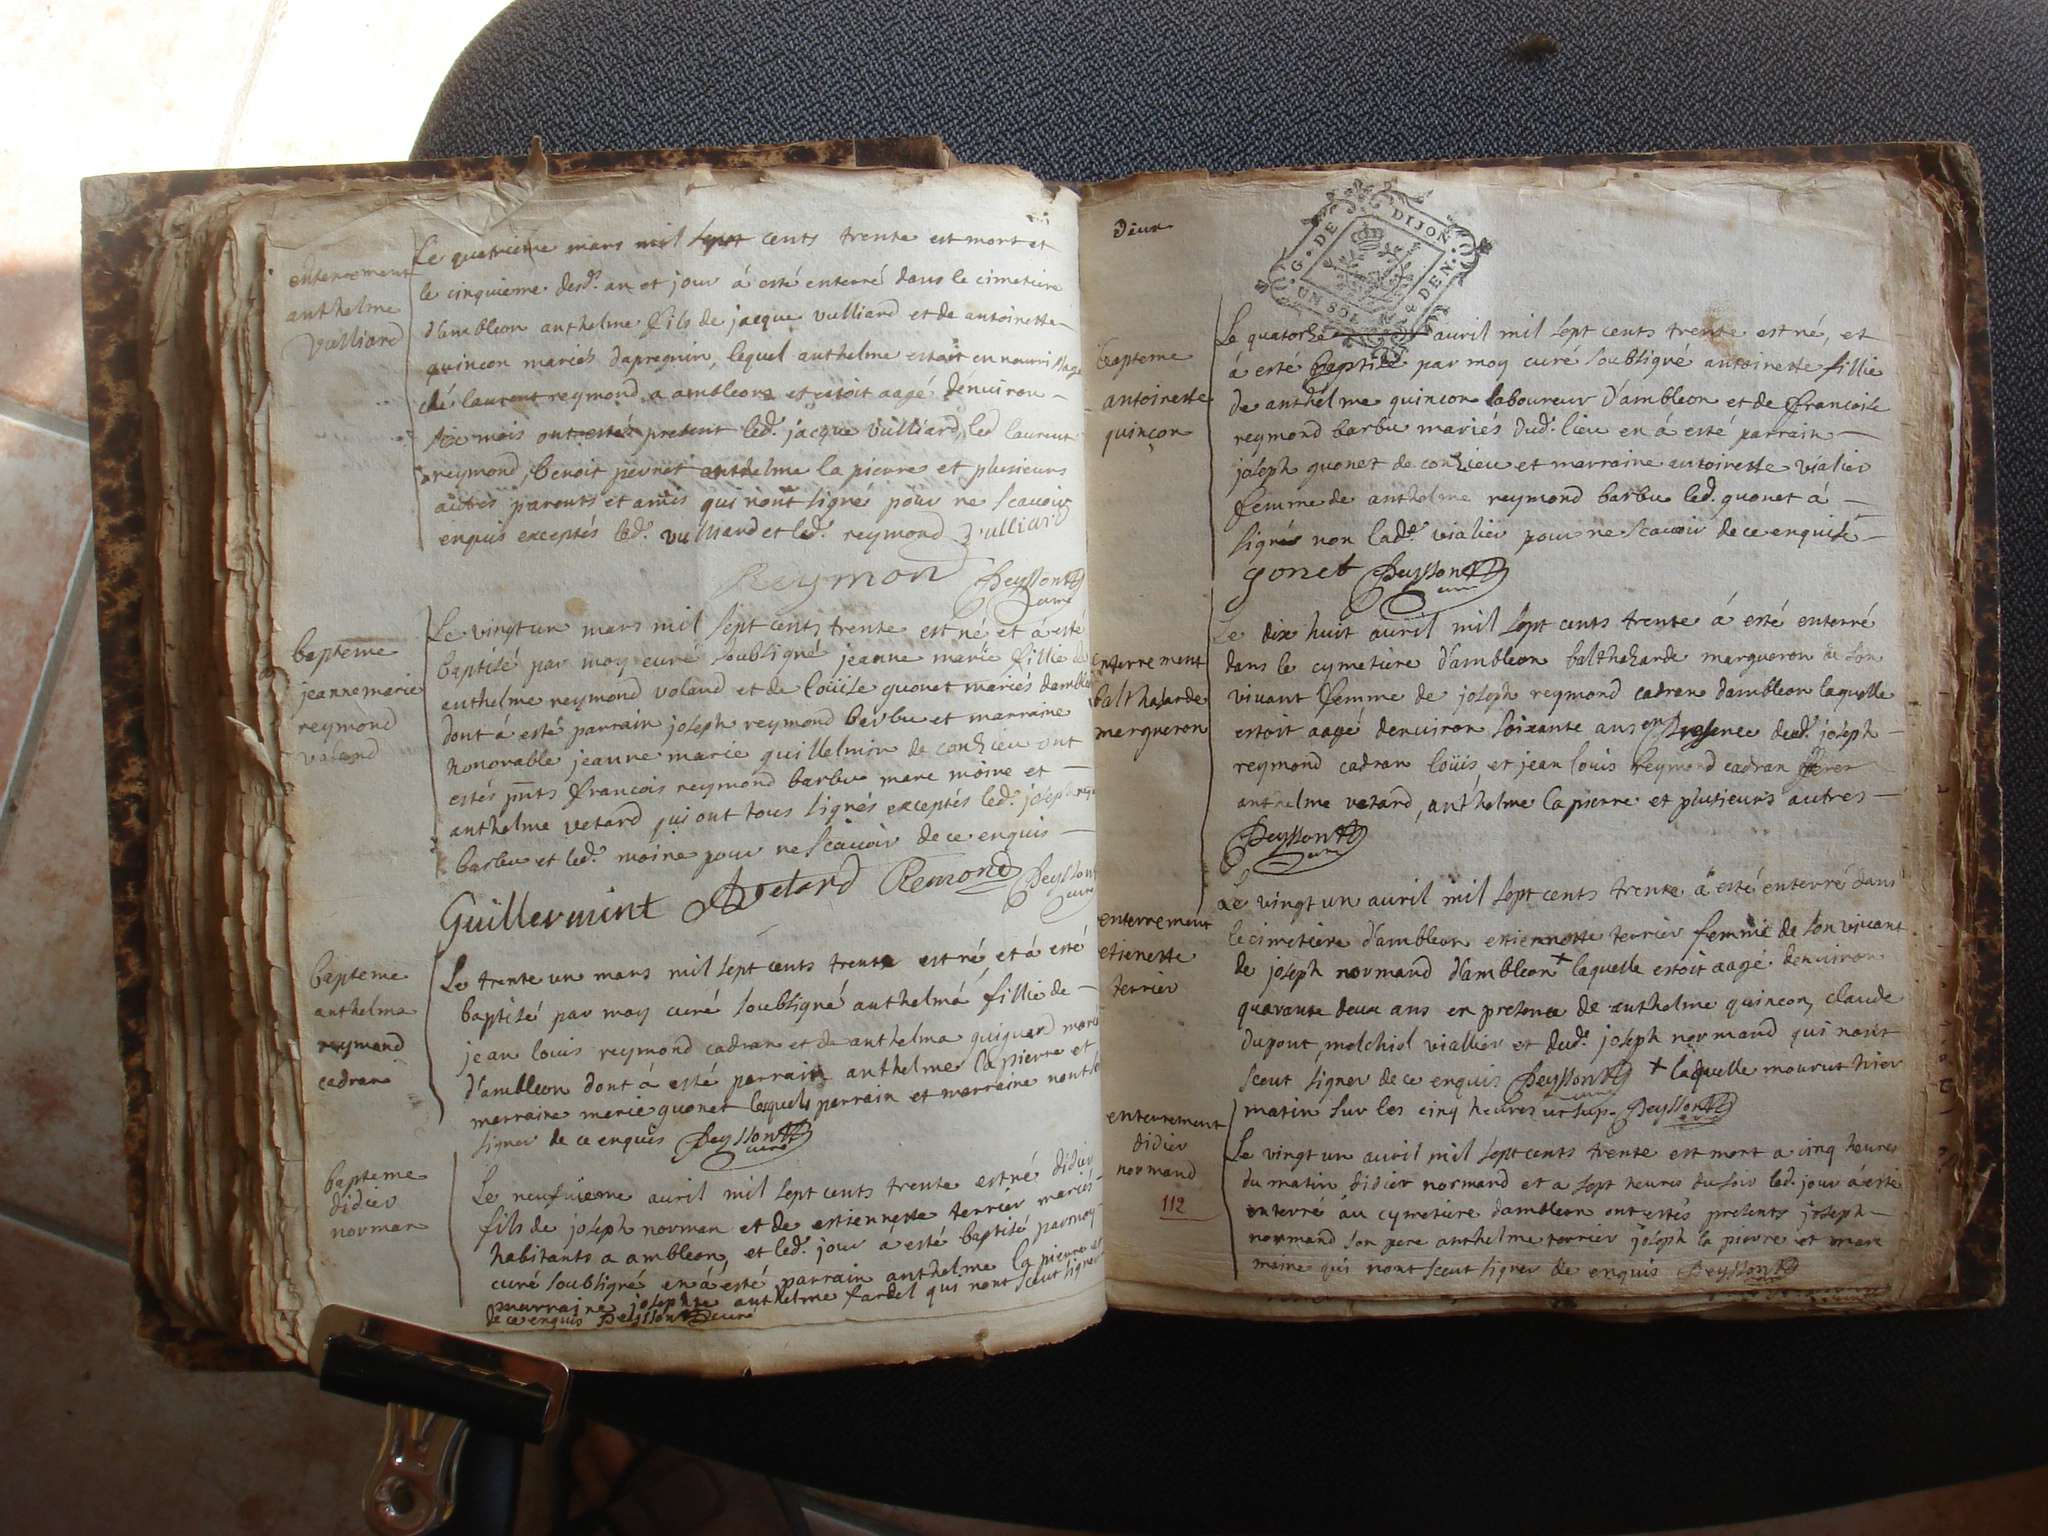 enterrement
anthelme
vulliard
Le quatrieme mars mil sept cents trente est mort et
le cinquieme desd. an et jour á esté enterré dans le cimetiere
d'ambleon anthelme fils de jacque vulliard et de antoinette
quincon mariés dapregnin, lequel anthelme estoit en nourrissage
ché laurent reymond a ambleon et estoit aagé dénviron
six mois ont estés present led. jacque vulliard, led laurent
reymond, benoit pernet anthelme la pierre et plusieurs
autres parents et amis qui n'ont signé pour ne scavoir
enquis exceptés led. vulliard et led. reymond Vulliard
Reymon Deysson
curé
bapteme
jeanne marie
reymond
voland
Le vingt un mars mil sept cents trente est né et á esté
baptisé par moy curé soubsigné jeanne marie fillie de
anthelme reymond voland et de loüise quonet mariés d'ambleon
dont á esté parrain joseph reymond barbu et marraine
honorable jeanne marie guillelmin de conzieu ont
estés pnts francois reymond barbu marc moine et
anthelme vetard qui ont tous signés exceptés led. joseph
barbu et led. moine pour ne scavoir de ce enquis
Guillermint A vetard Remond Deysson
curé
bapteme
anthelma
reymond
cadran
Le trente un mars mil sept cents trente est né et á esté
baptisé par moy curé soubsigné anthelma fillie de
jean louis reymond cadran et de anthelma guigard mariés
d'ambleon dont á esté parrain anthelme la pierre et
marraine marie quonet lesquels parrain et marraine nont sceu
signer de ce enquis Deysson
curé
bapteme
didier
norman
Le neufvieme avril mil sept cents trente est né didier
fils de joseph norman et de estiennette terrier mariés
habitants a ambleon, et led. jour á esté baptisé par moy
curé soubsigné en á esté parrain anthelme la pierre et
marraine josephte anthelme fardel qui nont sceut signer
de ce enquis Deysson curé
deux
G. DE DIJON
UN SOL & DEN.
bapteme
antoinette
quinçon
Le quatorze avril mil sept cents trente est né, et
á esté baptisé par moy curé soubsigné antoinette fillie
de anthelme quincon laboureur d'ambleon et de francoise
reymond barbu mariés dud. lieu en á esté parrain
joseph quonet de conzieu et marraine antoinette vialier
femme de anthelme reymond barbu led. quonet á
signé non lad. vialier pour ne scavoir de ce enquise
gonet Deysson
curé
enterrement
balthasarde
margueron
Le dix huit avril mil sept cents trente á esté enterré
dans le cymetiere d'ambleon balthazarde margueron de son
vivant femme de joseph reymond cadran d'ambleon laquelle
estoit aagé denviron soixante ans en presence dud. joseph
reymond cadran loüis et jean louis reymond cadran freres
anthelme vetard, anthelme la pierre et plusieurs autres
Deysson
curé
enterrement
etienette
terrier
Le vingt un avril mil sept cents trente á esté enterré dans
le cimetiere d'ambleon estiennette terrier femme de son vivant
de joseph normand d'ambleon + laquelle estoit aagé denviron
quarante deux ans en presence de anthelme quincon, claude
dupont, melchiol viallier et dud. joseph normand qui nont
sceut signer de ce enquis Deysson + laquelle mourut hier
matin sur les cinq heures ut sup. Deysson
enterrement
didier
normand
112
Le vingt un avril mil sept cents trente est mort a cinq heures
du matin didier normand et a sept heures du soir led. jour á esté
enterré áu cymetiere d'ambleon ont estés presents joseph
normand son pere anthelme terrier joseph la pierre et marc
moine qui nont sceut signer de enquis Deysson